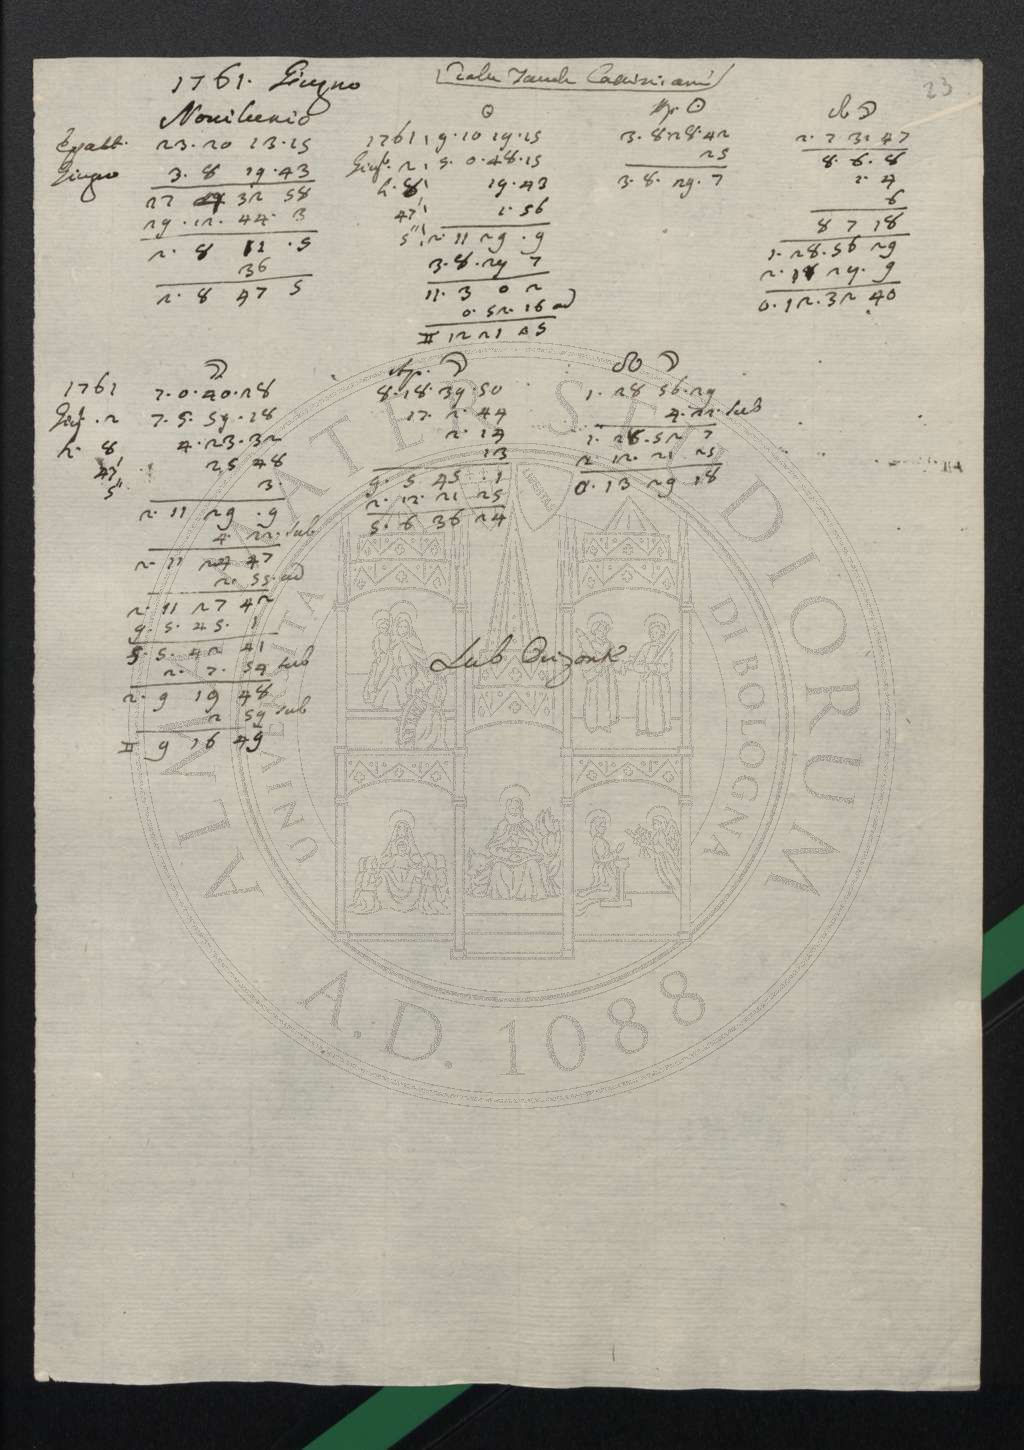 1761. Giugno
23
Novilunio
Epatt. 23. 20 13. 15
Giugno 3. 8 19. 43
27 4 32 58
29. 12. 44. 3
2. 8 11. 5
36
2. 8 47 5
☉
1761. 9. 10 19. 15
Giug. 2. 5. 0. 48. 15
h. 8. 19. 43
47' 1. 56
5'' 2. 11 29. 9
3. 8. 29 7
11. 3 0 2
0. 52. 16 ad
♊ 12 21 25
Ap. ☉
3. 8 28. 42
25
3. 8. 29. 7
☽
2. 7 31 47
8. 6. 8
1. 4
6
8 7 18
1. 28. 56 29
2. 11 29. 9
0. 12. 32 40
☽
1761 7. 0. 40. 28
Giug. 2 7. 5. 59. 18
h. 8 4. 23. 32
47' 25 48
5'' 3.
2. 11 29. 9
4. 22. sub
2. 11 24 47
2. 55. ad
2. 11 27 42
9. 5. 45. 1
5. 5. 42 41
2. 7. 54 sub
2. 9 19 48
2 59 sub
♊ 9 16 49
Ap. ☽
8. 18. 39. 50
17. 2. 44
2. 14
13
9. 5 45. 1
2. 12. 21 25
5. 6 36 24
☽
1. 28 56. 29
4. 22. sub
1. 28. 52 7
2. 12. 21 25
0. 13 29 18
Sub
ALMA MATER STUDIORUM
UNIVERSITA DI BOLOGNA
A.D. 1088